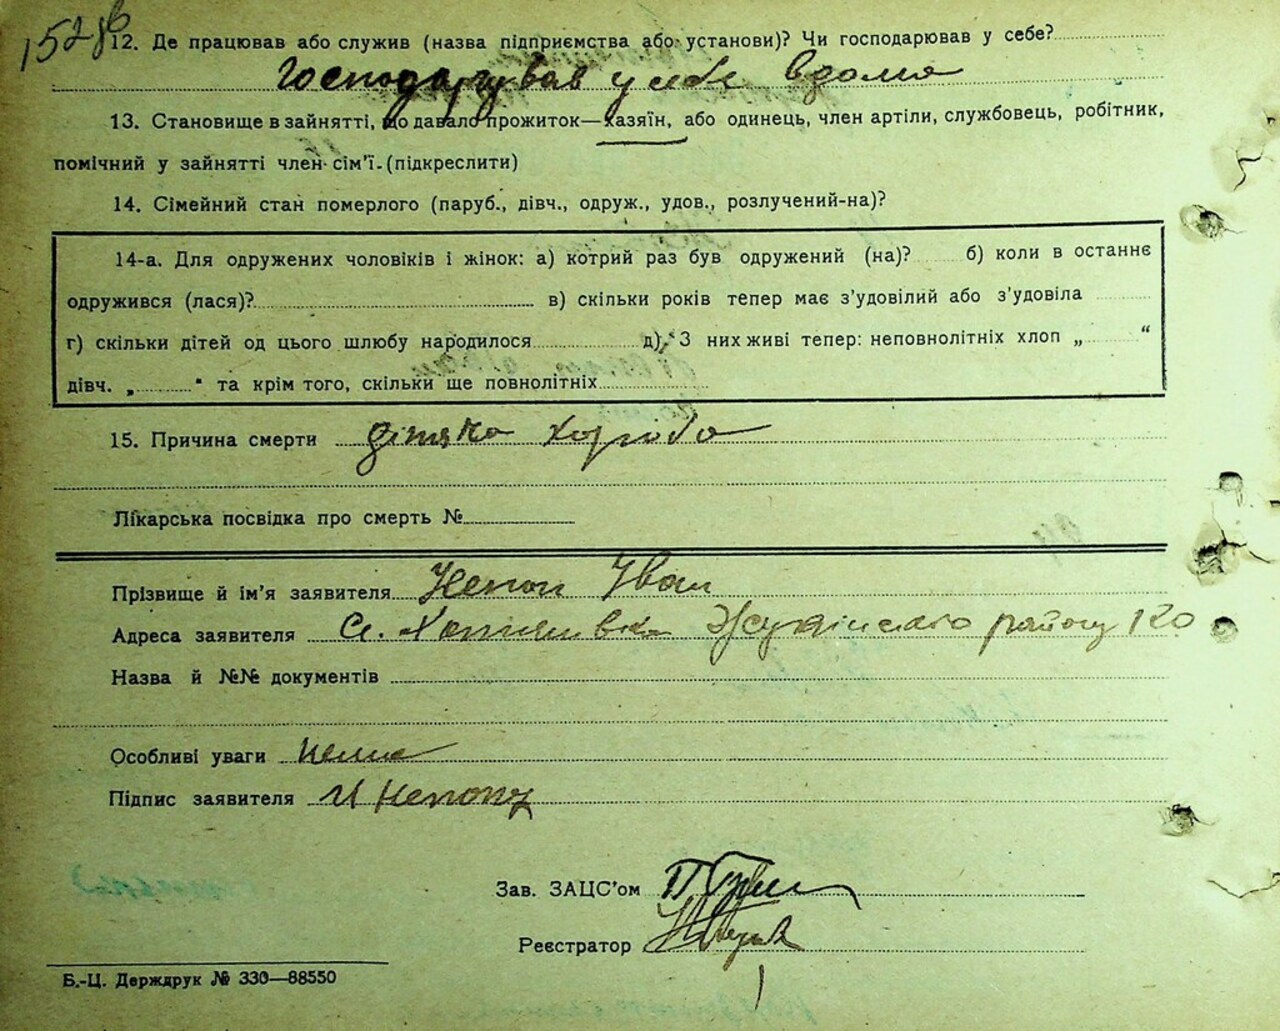 12. Де працював або служив (назва підприємства або установи)? Чи господарював у себе?
Господарував у себе вдома
13. Становище в зайнятті, що давало прожиток—хазяїн, або одинець, член артіли, службовець, робітник,
помічний у зайнятті член сім'ї. (підкреслити)
14. Сімейний стан померлого (паруб., дівч., одруж., удов., розлучений-на)?
14-а. Для одружених чоловіків і жінок: а) котрий раз був одружений (на)? б) коли в останнє
одружився (лася)? в) скільки років тепер має з'удовілий або з'удовіла
г) скільки дітей од цього шлюбу народилося д) З них живі тепер: неповнолітніх хлоп „ “
дівч. „ “ та крім того, скільки ще повнолітніх
15. Причина смерти дітяча хороба
Лікарська посвідка про смерть №
Прізвище й ім'я заявителя Непоп Іван
Адреса заявителя с. району 120
Назва й №№ документів
Особливі уваги нема
Підпис заявителя И
Зав. ЗАЦС'ом
Реєстратор
Б.-Ц. Держдрук № 330—88550